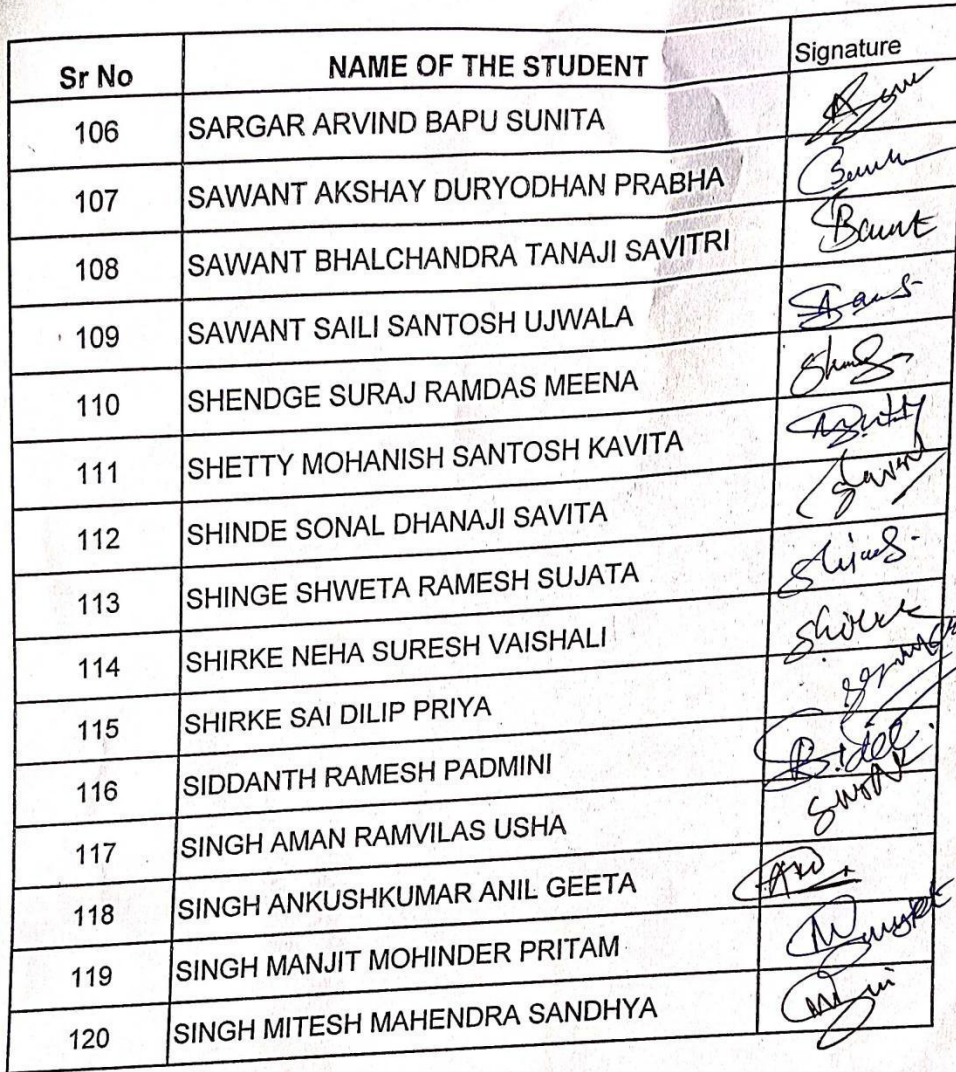 Sr No NAME OF THE STUDENT Signature
106 SARGAR ARVIND BAPU SUNITA
107 SAWANT AKSHAY DURYODHAN PRABHA
108 SAWANT BHALCHANDRA TANAJI SAVITRI
109 SAWANT SAILI SANTOSH UJWALA
110 SHENDGE SURAJ RAMDAS MEENA
111 SHETTY MOHANISH SANTOSH KAVITA
112 SHINDE SONAL DHANAJI SAVITA
113 SHINGE SHWETA RAMESH SUJATA
114 SHIRKE NEHA SURESH VAISHALI
115 SHIRKE SAI DILIP PRIYA
116 SIDDANTH RAMESH PADMINI
117 SINGH AMAN RAMVILAS USHA
118 SINGH ANKUSHKUMAR ANIL GEETA
119 SINGH MANJIT MOHINDER PRITAM
120 SINGH MITESH MAHENDRA SANDHYA